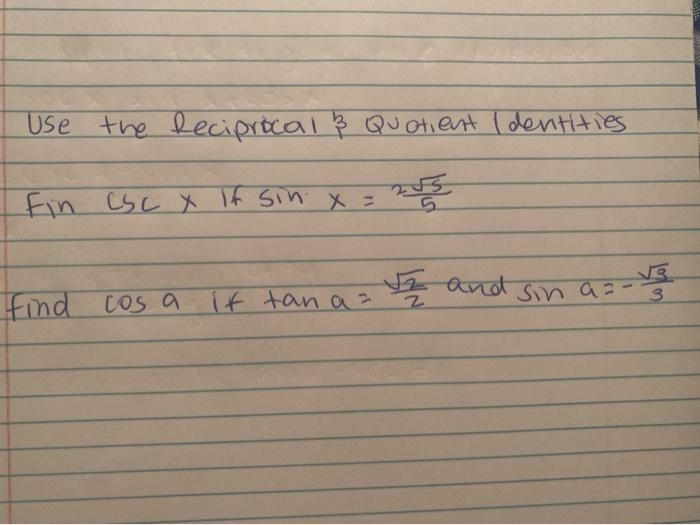 Use the Reciprocal & Quotient Identities
Fin csc x if sin x = 2√5/5
find cos a if tan a = √2/2 and sin a = -√3/3